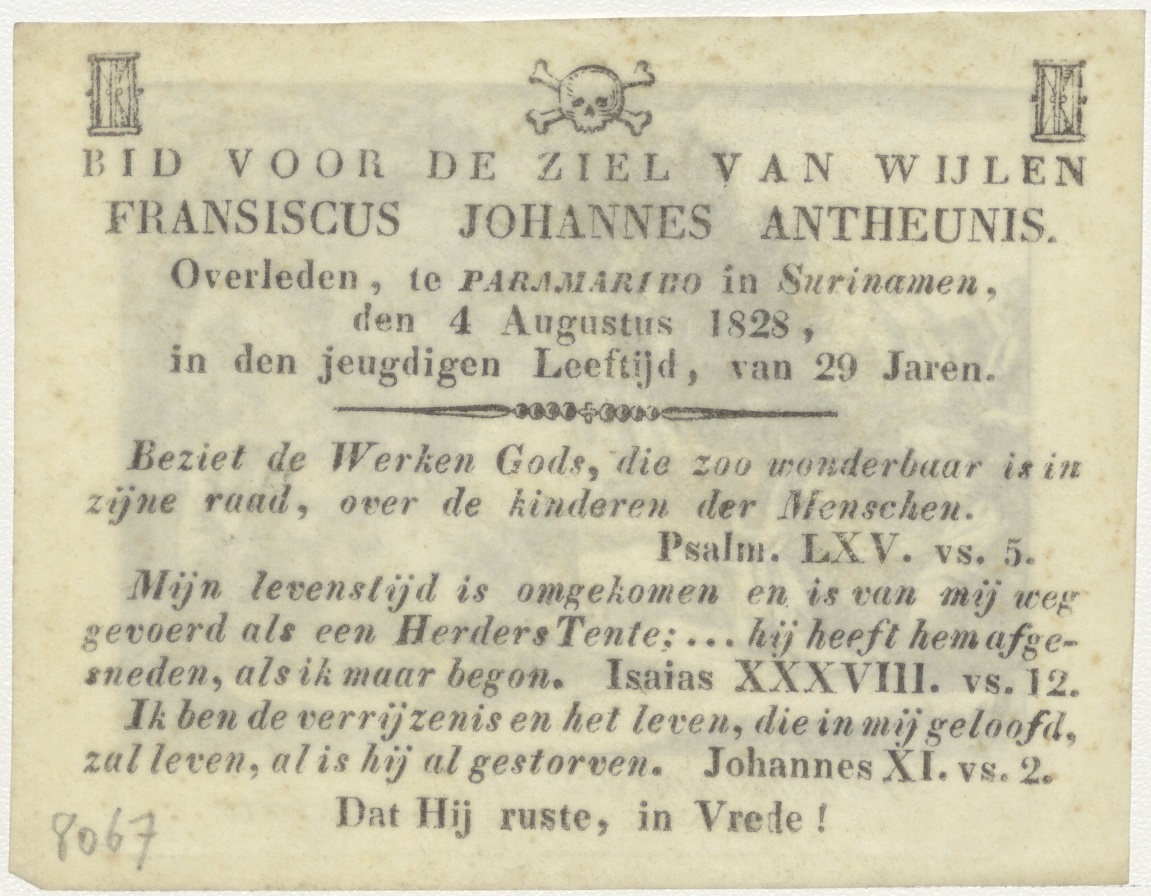 BID VOOR DE ZIEL VAN WIJLEN
FRANSISCUS JOHANNES ANTHEUNIS.
Overleden, te PARAMARIBO in Surinamen,
den 4 Augustus 1828,
in den jeugdigen Leeftijd, van 29 Jaren.
Beziet de Werken Gods, die zoo wonderbaar is in
zijne raad, over de kinderen der Menschen.
Psalm. LXV. vs. 5.
Mijn levenstijd is omgekomen en is van mij weg
gevoerd als een Herders Tente; ... hij heeft hem afge-
sneden, als ik maar begon. Isaias XXXVIII. vs. 12.
Ik ben de verrijzenis en het leven, die in mij geloofd,
zal leven, al is hij al gestorven. Johannes XI. vs. 2.
Dat Hij ruste, in Vrede!
8067